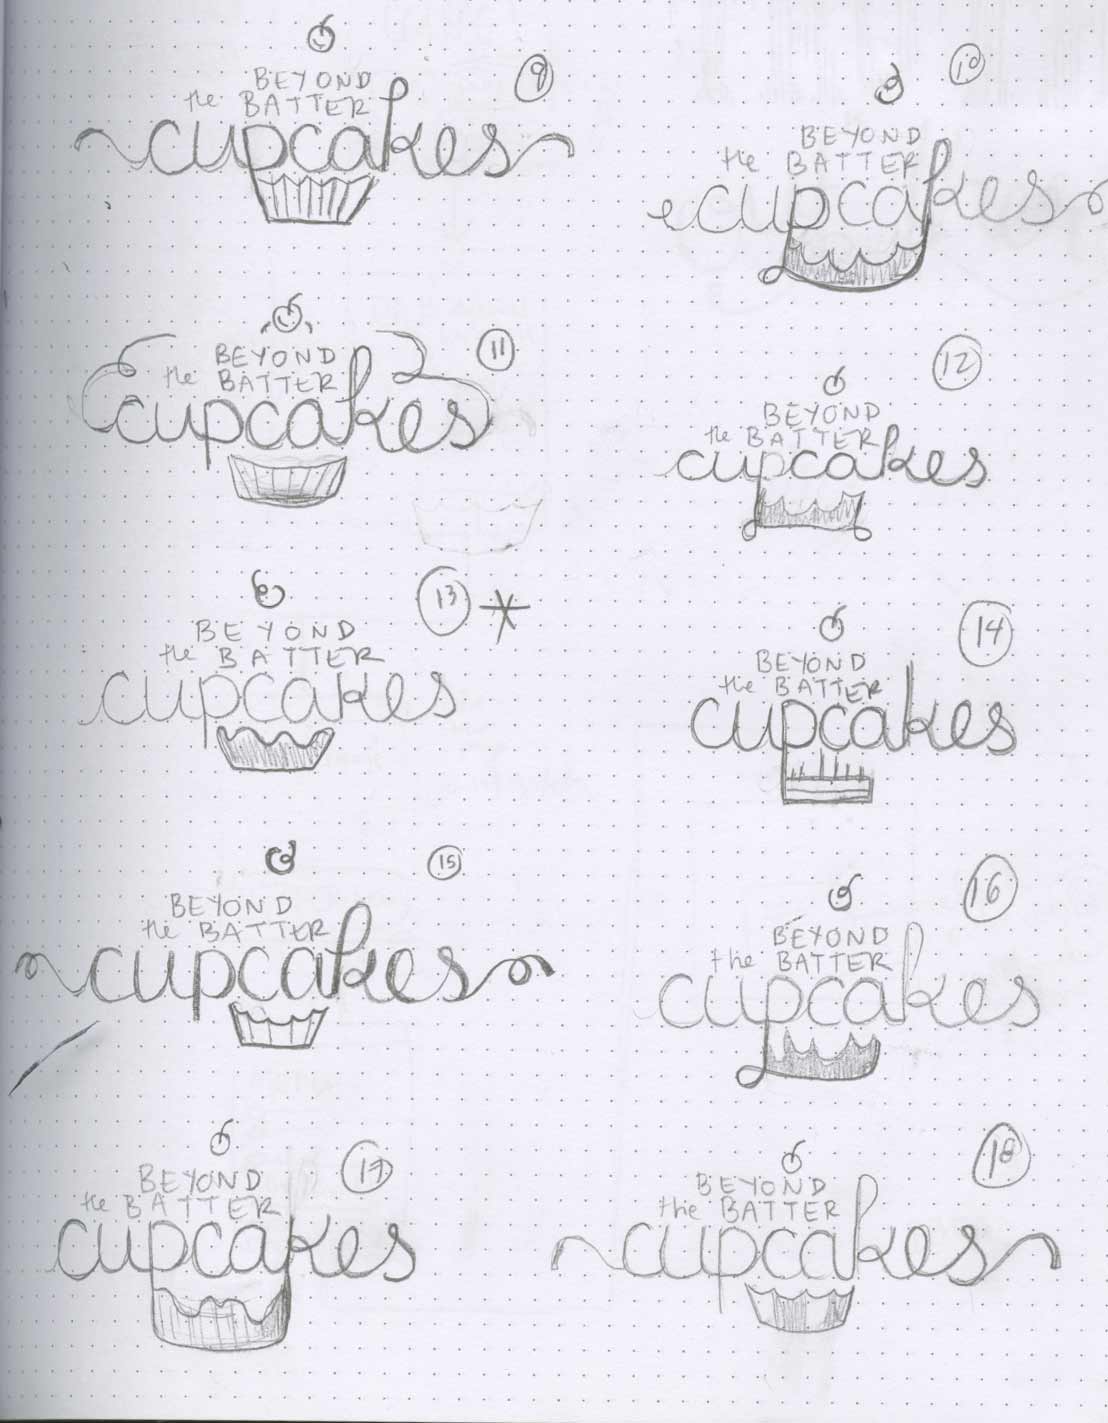 9
BEYOND
the BATTER
cupcakes
10
BEYOND
the BATTER
cupcakes
11
BEYOND
the BATTER
cupcakes
12
BEYOND
the BATTER
cupcakes
13 *
BEYOND
the BATTER
cupcakes
14
BEYOND
the BATTER
cupcakes
15
BEYOND
the BATTER
cupcakes
16
BEYOND
the BATTER
cupcakes
17
BEYOND
the BATTER
cupcakes
18
BEYOND
the BATTER
cupcakes